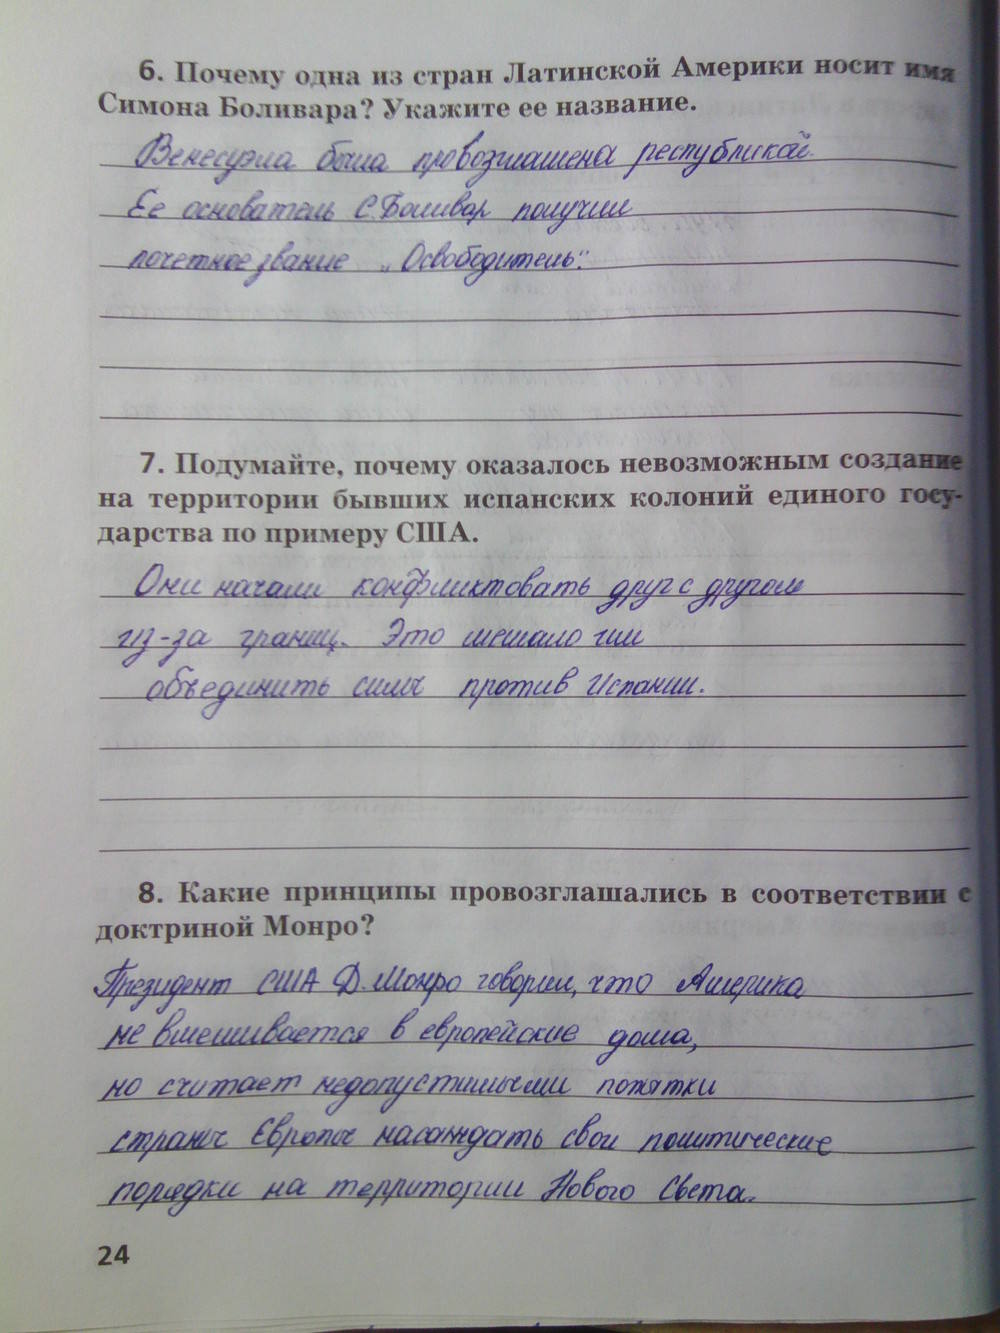 6. Почему одна из стран Латинской Америки носит имя
Симона Боливара? Укажите ее название.
Венесуэла была провозглашена республикой.
Ее основатель С. Боливар получил
почетное звание „Освободитель".
7. Подумайте, почему оказалось невозможным создание
на территории бывших испанских колоний единого госу-
дарства по примеру США.
Они начали конфликтовать друг с другом
из-за границ. Это мешало им
объединить силы против Испании.
8. Какие принципы провозглашались в соответствии с
доктриной Монро?
Президент США Д. Монро говорил, что Америка
не вмешивается в европейские дома,
но считает недопустимыми попытки
страны Европы насаждать свои политические
порядки на территории Нового Света.
24